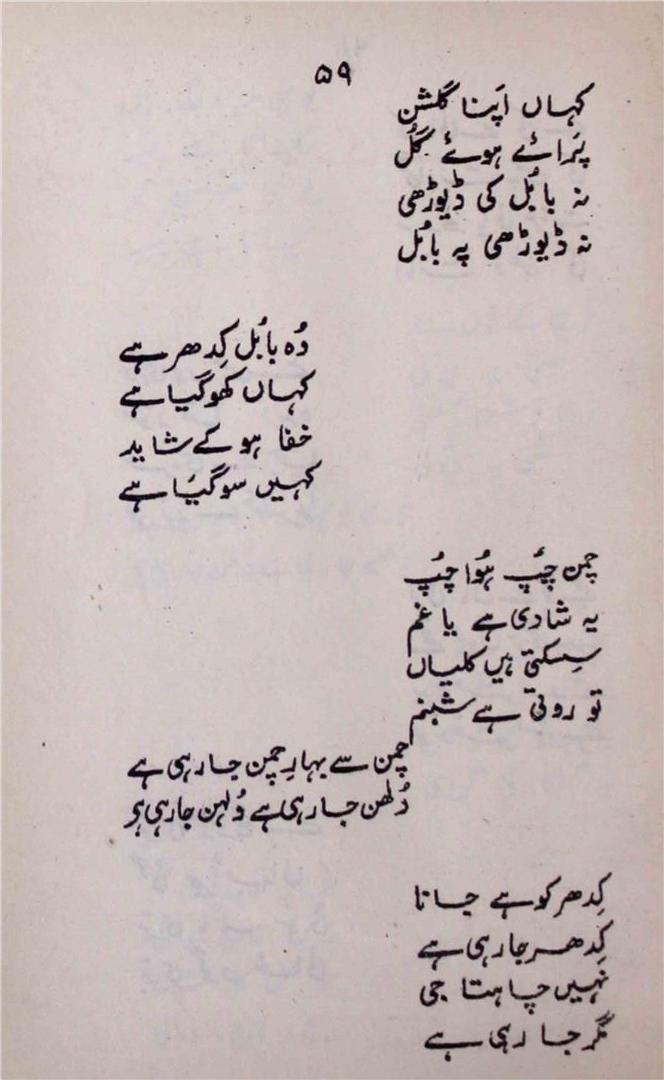 ۵۹
کہاں اپنا گلشن
پَرائے ہوئے گُل
نہ بابُل کی ڈیوڑھی
نہ ڈیوڑھی پہ بابُل
وُہ بابُل کِدھر ہے
کہاں کھو گیا ہے
خفا ہو کے شاید
کہیں سو گیا ہے
چمن چُپ ہُوا چُپ
یہ شادی ہے یا غم
سِسکتی ہیں کلیاں
تو روتی ہے شبنم
چمن سے بہارِ چمن جا رہی ہے
دُلھن جا رہی ہے دُلہن جا رہی ہر
کِدھر کو ہے جانا
کِدھر جا رہی ہے
نہیں چاہتا جی
مگر جا رہی ہے